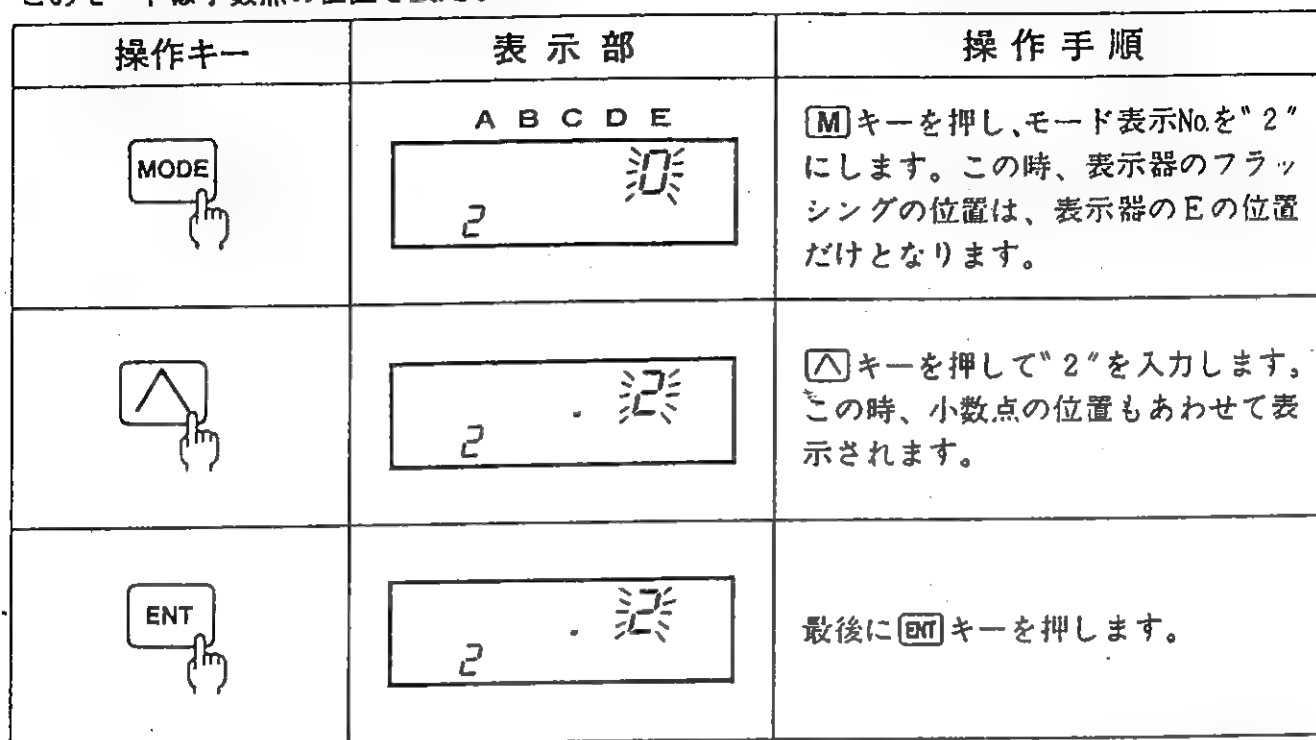 操作キー
表示部
操作手順
MODE
A B C D E
0
2
Mキーを押し、モード表示No.を"2"
にします。この時、表示器のフラッ
シングの位置は、表示器のEの位置
だけとなります。
. 2
2
∧キーを押して"2"を入力します。
この時、小数点の位置もあわせて表
示されます。
ENT
. 2
2
最後にENTキーを押します。